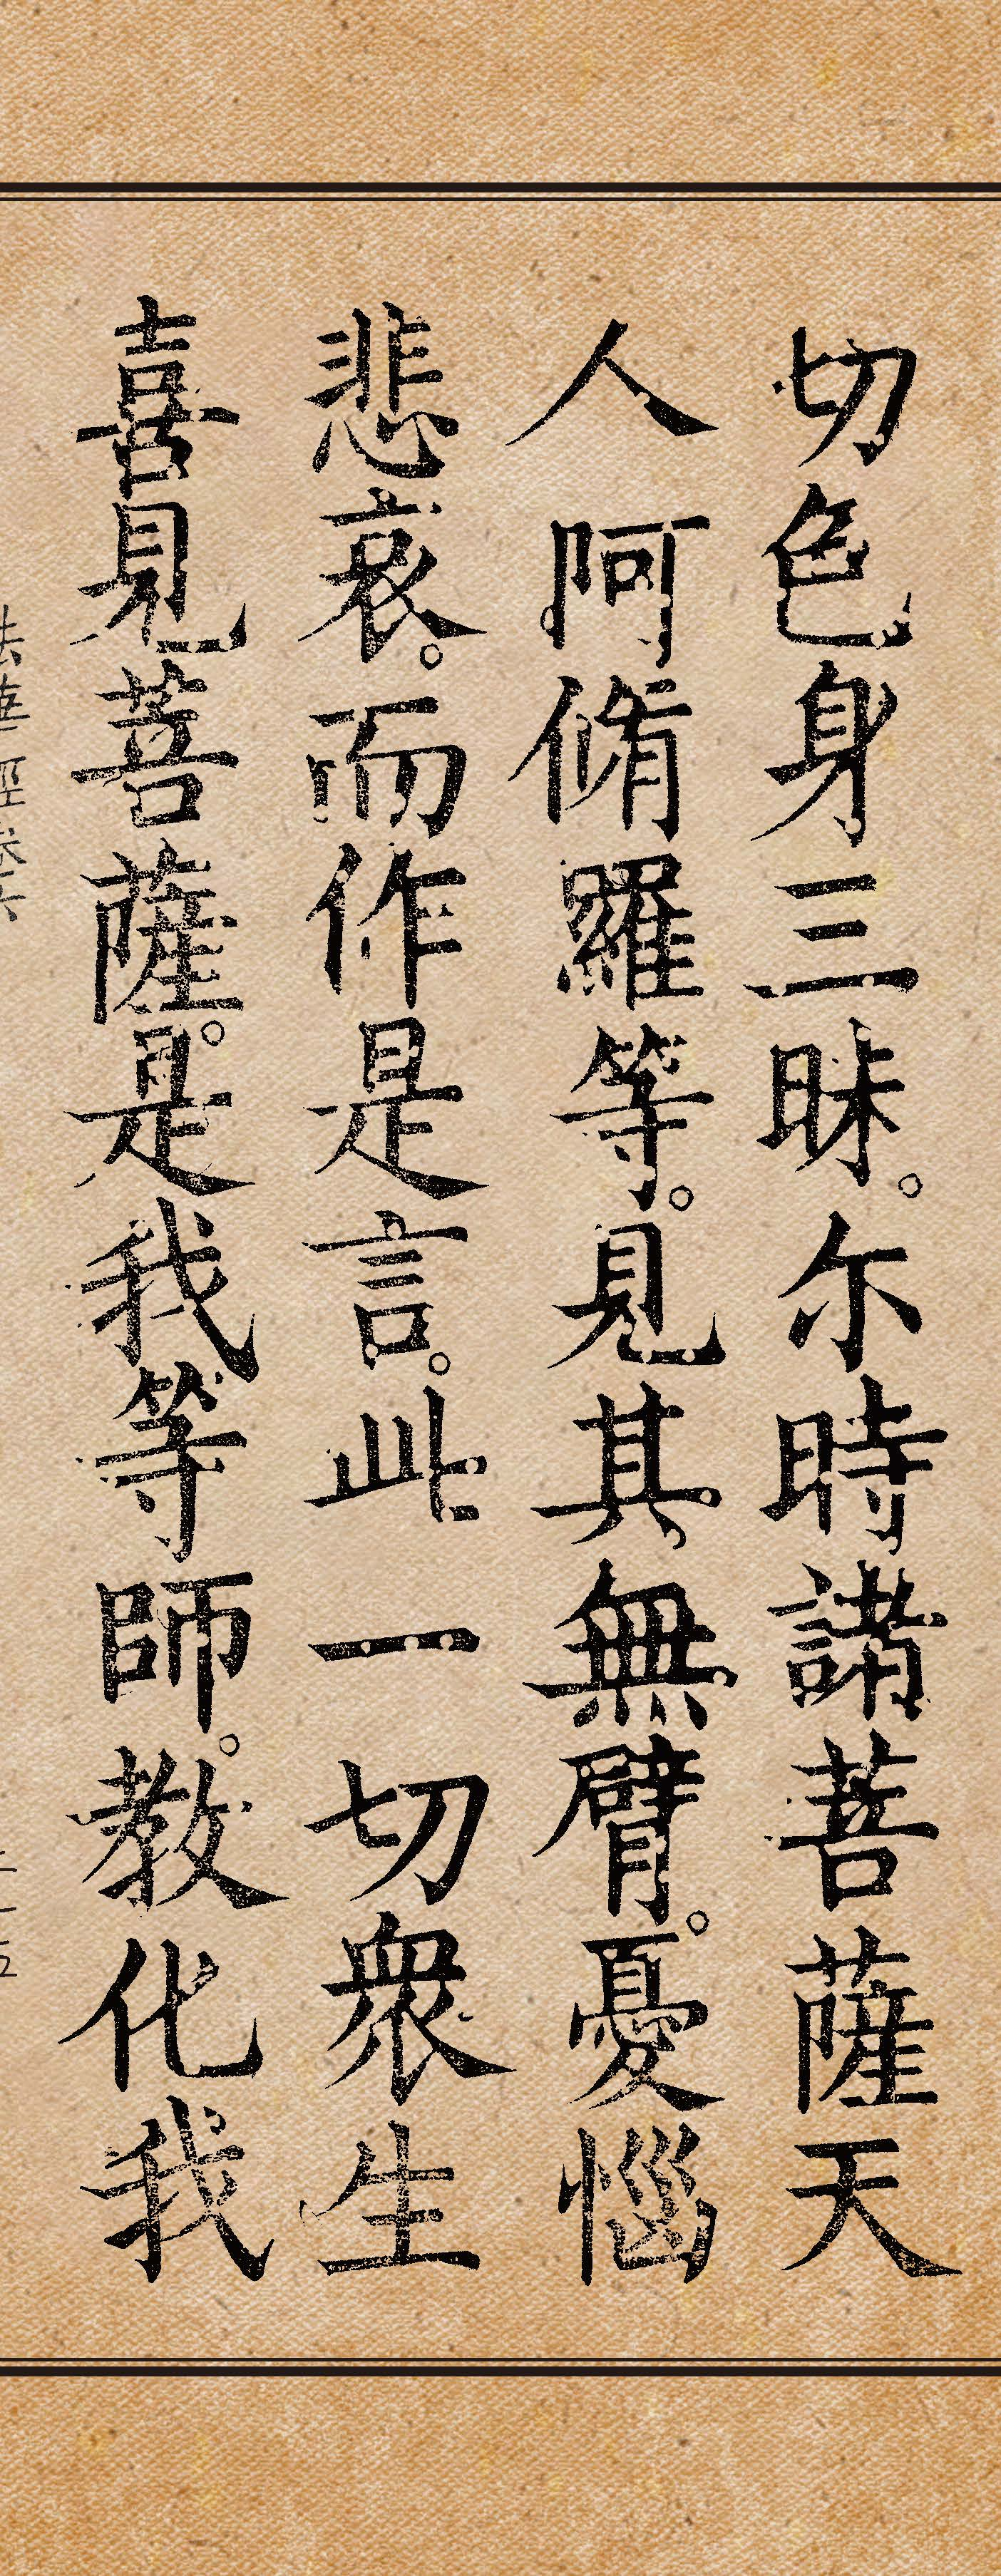 切色身三昧。尒時諸菩薩天
人阿脩羅等。見其無臂。憂惱
悲哀。而作是言。此一切衆生
喜見菩薩。是我等師。教化我
法華經卷六